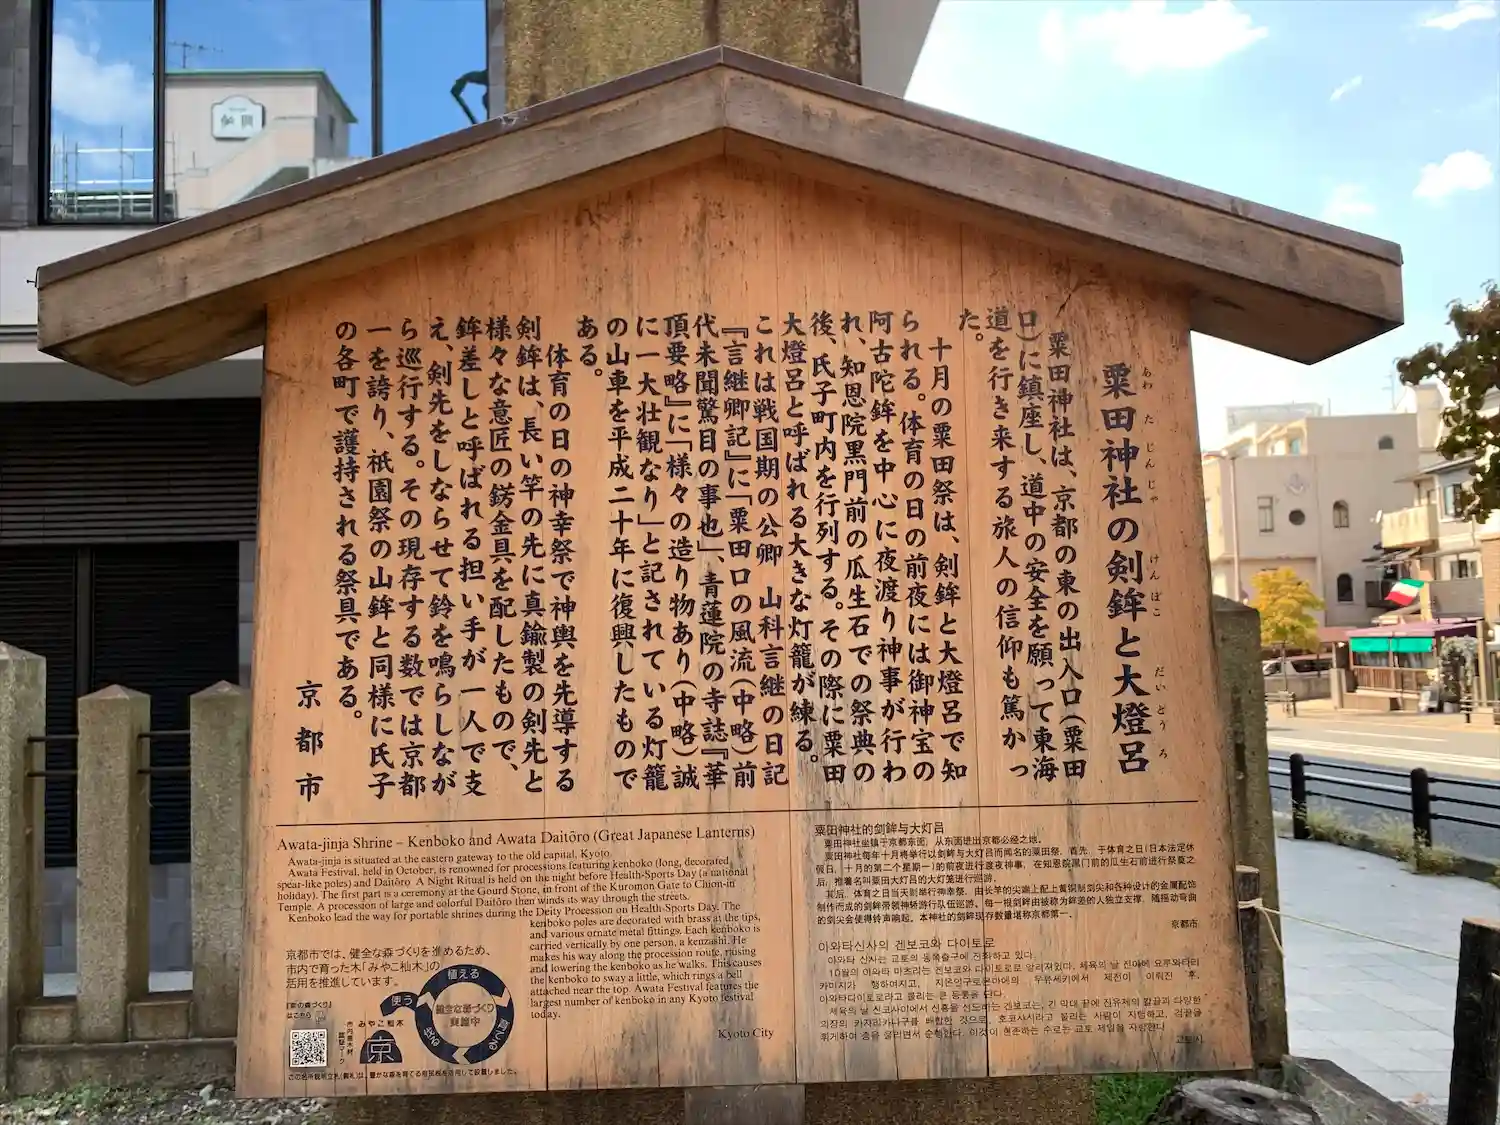 粟田神社の剣鉾と大燈呂
あわ た じんじゃ けんぼこ だいとう ろ
粟田神社は、京都の東の出入口(粟田
口)に鎮座し、道中の安全を願って東海
道を行き来する旅人の信仰も篤かっ
た。
十月の粟田祭は、剣鉾と大燈呂で知
られる。体育の日の前夜には御神宝の
阿古陀鉾を中心に夜渡り神事が行わ
れ、知恩院黒門前の瓜生石での祭典の
後、氏子町内を行列する。その際に粟田
大燈呂と呼ばれる大きな灯籠が練る。
これは戦国期の公卿 山科言継の日記
『言継卿記』に「粟田口の風流(中略)前
代未聞驚目の事也」、青蓮院の寺誌『華
頂要略』に「様々の造り物あり(中略)誠
に一大壮観なり」と記されている灯籠
の山車を平成二十年に復興したもので
ある。
体育の日の神幸祭で神輿を先導する
剣鉾は、長い竿の先に真鍮製の剣先と
様々な意匠の錺金具を配したもので、
鉾差しと呼ばれる担い手が一人で支
え、剣先をしならせて鈴を鳴らしなが
ら巡行する。その現存する数では京都
一を誇り、祇園祭の山鉾と同様に氏子
の各町で護持される祭具である。
京都市
Awata-jinja Shrine – Kenboko and Awata Daitôro (Great Japanese Lanterns)
Awata-jinja is situated at the eastern gateway to the old capital, Kyoto.
Awata Festival, held in October, is renowned for processions featuring kenboko (long, decorated
spear-like poles) and Daitôro. A Night Ritual is held on the night before Health-Sports Day (a national
holiday). The first part is a ceremony at the Gourd Stone, in front of the Kuromon Gate to Chion-in
Temple. A procession of large and colorful Daitôro then winds its way through the streets.
Kenboko lead the way for portable shrines during the Deity Procession on Health-Sports Day. The
kenboko poles are decorated with brass at the tips,
and various ornate metal fittings. Each kenboko is
carried vertically by one person, a kenzashi. He
makes his way along the procession route, raising
and lowering the kenboko as he walks. This causes
the kenboko to sway a little, which rings a bell
attached near the top. Awata Festival features the
largest number of kenboko in any Kyoto festival
today.
Kyoto City
京都市では、健全な森づくりを進めるため、
市内で育った木「みやこ杣木」の
活用を推進しています。
植える
育てる
使う
健全な森づくり
実施中
みやこ杣木
京
粟田神社的剑鉾与大灯吕
粟田神社坐镇于京都东面,从东面进出京都必经之地。
粟田神社每年十月将举行以剑鉾与大灯吕而闻名的粟田祭。首先,于体育之日(日本法定休
假日,十月的第二个星期一)的前夜进行渡夜神事,在知恩院黑门前的瓜生石前进行祭奠之
后,推着名叫粟田大灯吕的大灯笼进行巡游。
其后,体育之日当天则举行神幸祭。由长竿的尖端上配上黄铜制剑尖和各种设计的金属配饰
制作而成的剑鉾带领神轿游行队伍巡游。每一根剑鉾由被称为鉾差的人独立支撑,随摇动弯曲
的剑尖会使得铃声响起。本神社的剑鉾现存数量堪称京都第一。
京都市
아와타신사의 겐보코와 다이토로
아와타 신사는 교토의 동쪽출구에 진좌하고 있다.
교토시